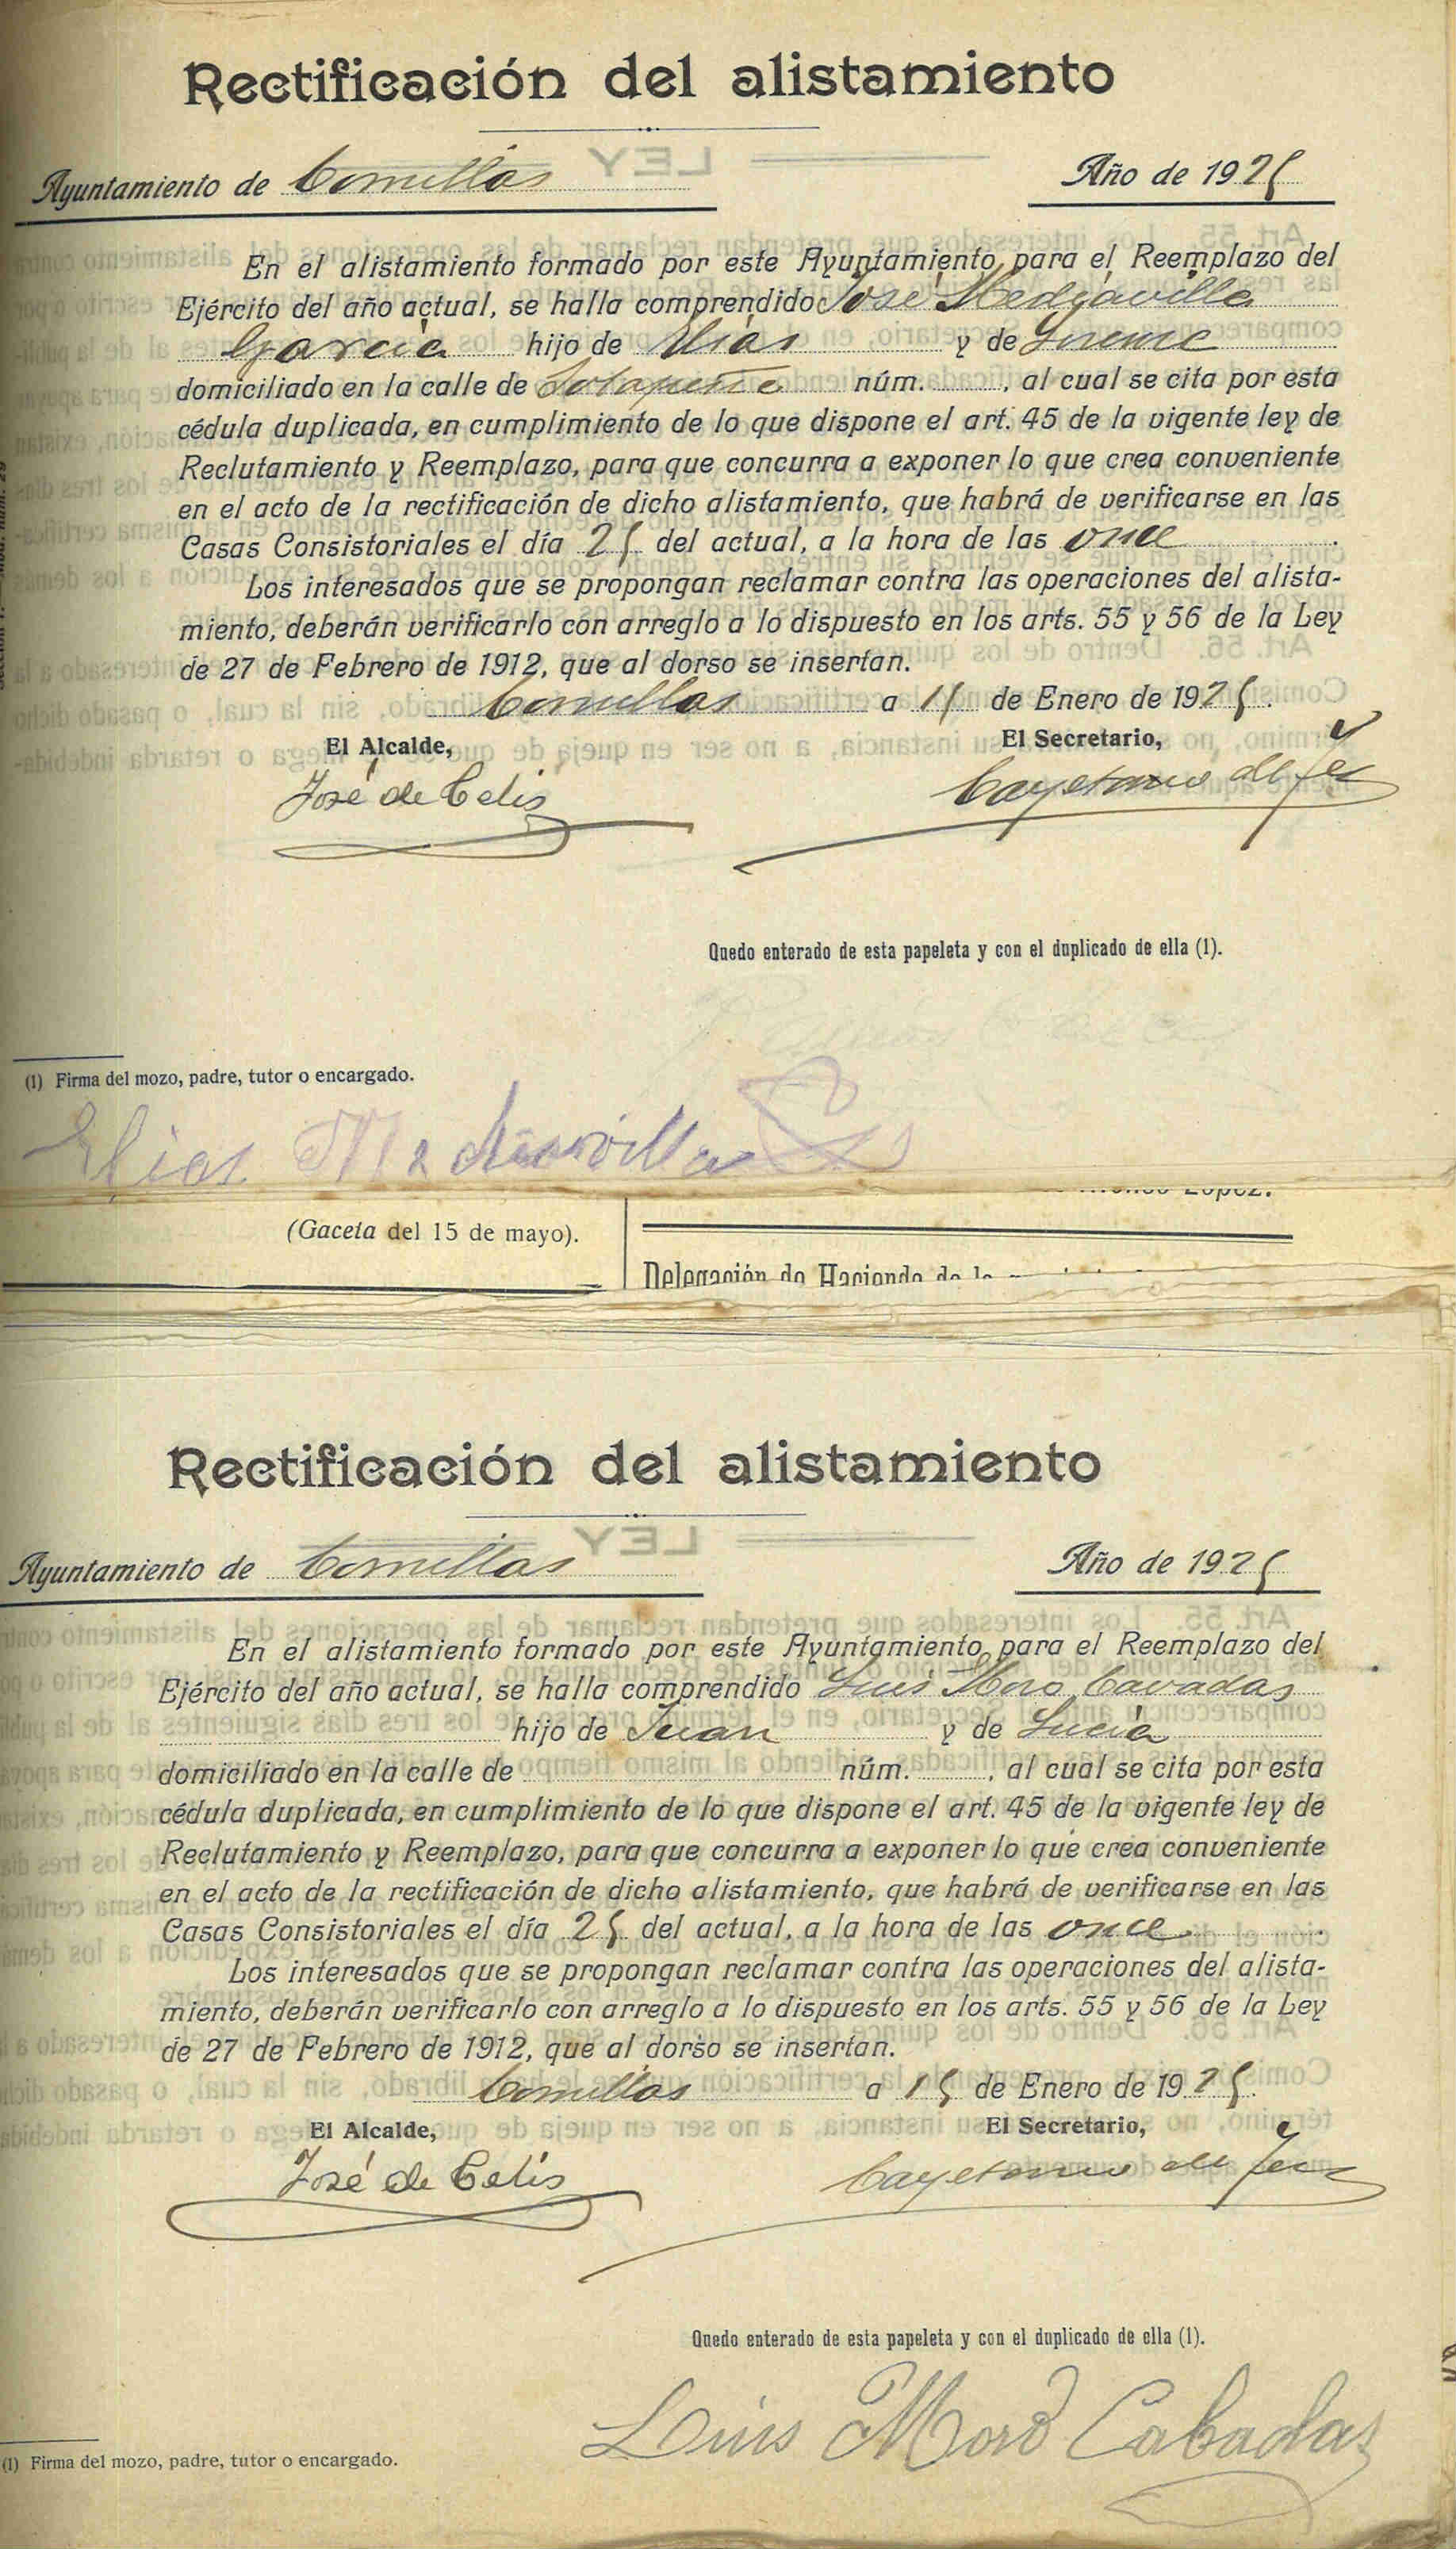 Rectificación del alistamiento
LEY
Ayuntamiento de Comillas Año de 1925
En el alistamiento formado por este Ayuntamiento, para el Reemplazo del
Ejército del año actual, se halla comprendido José Mediavilla
García hijo de Elías y de
domiciliado en la calle de Solapeña núm. , al cual se cita por esta
cédula duplicada, en cumplimiento de lo que dispone el art. 45 de la vigente ley de
Reclutamiento y Reemplazo, para que concurra a exponer lo que crea conveniente
en el acto de la rectificación de dicho alistamiento, que habrá de verificarse en las
Casas Consistoriales el día 25 del actual, a la hora de las once .
Los interesados que se propongan reclamar contra las operaciones del alista-
miento, deberán verificarlo con arreglo a lo dispuesto en los arts. 55 y 56 de la Ley
de 27 de Febrero de 1912, que al dorso se insertan.
Comillas a 15 de Enero de 1925.
El Alcalde, El Secretario,
José de Celis Cayetano de
Quedo enterado de esta papeleta y con el duplicado de ella (1).
(1) Firma del mozo, padre, tutor o encargado.
Elias Mediavilla
López.
(Gaceta del 15 de mayo).
Delegación de Hacienda de la
Rectificación del alistamiento
LEY
Ayuntamiento de Comillas Año de 1925
En el alistamiento formado por este Ayuntamiento, para el Reemplazo del
Ejército del año actual, se halla comprendido Luis Moro Cavadas
hijo de Juan y de Lucía
domiciliado en la calle de núm. , al cual se cita por esta
cédula duplicada, en cumplimiento de lo que dispone el art. 45 de la vigente ley de
Reclutamiento y Reemplazo, para que concurra a exponer lo que crea conveniente
en el acto de la rectificación de dicho alistamiento, que habrá de verificarse en las
Casas Consistoriales el día 25 del actual, a la hora de las once .
Los interesados que se propongan reclamar contra las operaciones del alista-
miento, deberán verificarlo con arreglo a lo dispuesto en los arts. 55 y 56 de la Ley
de 27 de Febrero de 1912, que al dorso se insertan.
Comillas a 15 de Enero de 1925.
El Alcalde, El Secretario,
José de Celis Cayetano de
Quedo enterado de esta papeleta y con el duplicado de ella (1).
Luis Moro Cabadas
(1) Firma del mozo, padre, tutor o encargado.